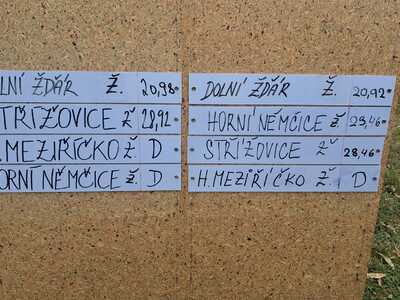 LNÍ ŽĎÁR Ž. 20,98
TŘÍŽOVICE Ž 28,92
.MEZIŘÍČKO Ž. D
ORNÍ NĚMČICE Ž. D
DOLNÍ ŽĎÁR Ž. 20,92
HORNÍ NĚMČICE Ž 29,46
STŘÍŽOVICE Ž 28,46
H.MEZIŘÍČKO Ž. D